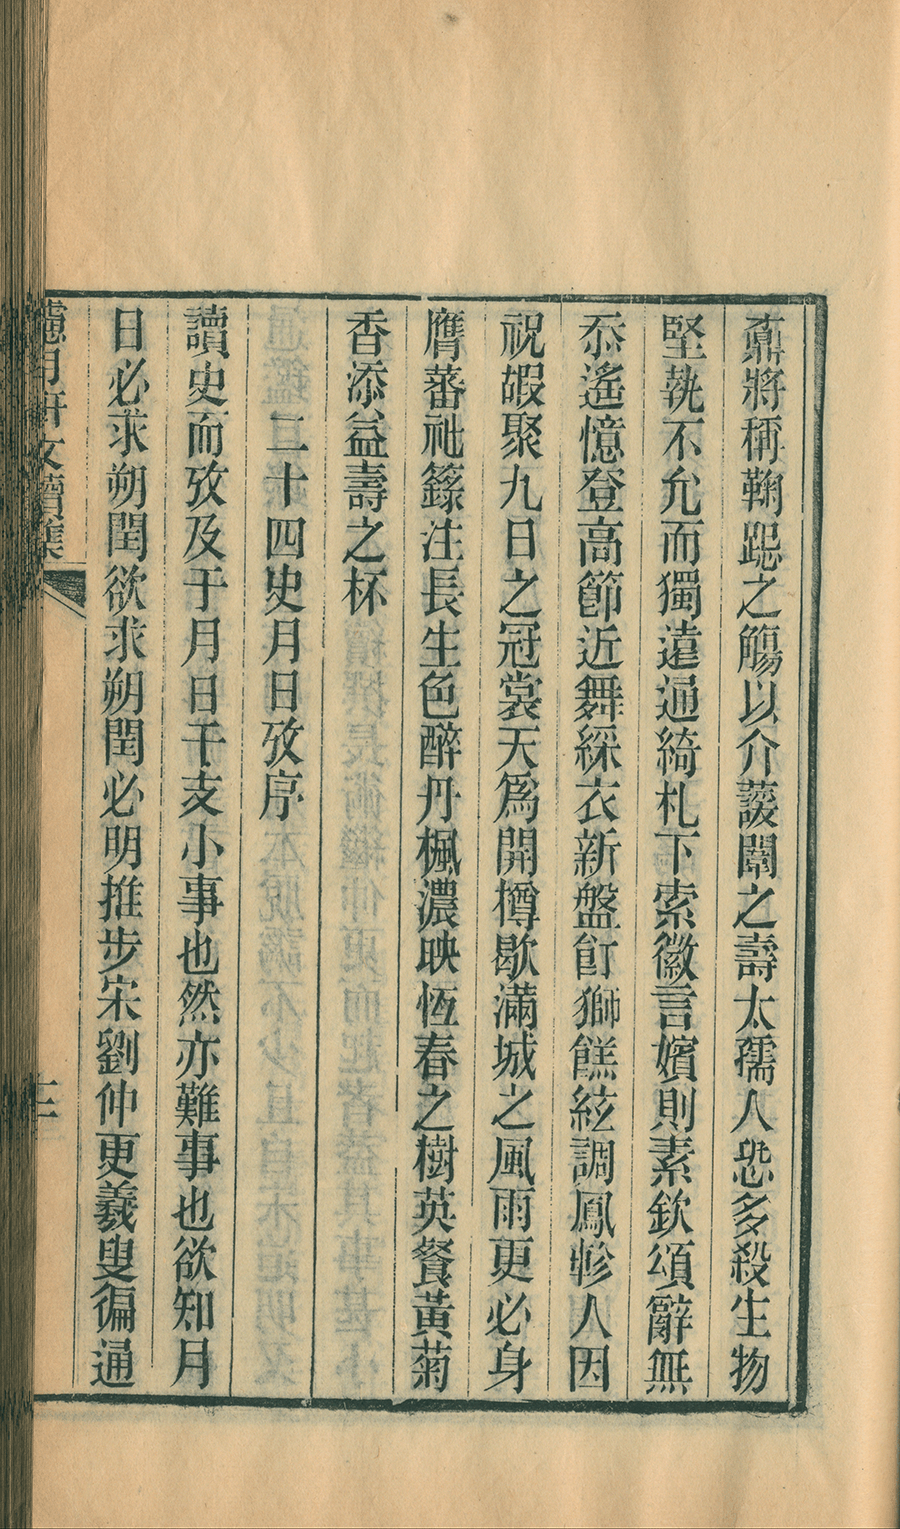 將稱鞠跽之觴以介蘐闈之壽太孺人恐多殺生物
堅執不允而獨遠通綺札下索徽言嬪則素欽頌辭無
忝遙憶登高節近舞綵衣新盤飣獅餻絃調鳳軫人因
祝嘏聚九日之冠裳天爲開樽歇滿城之風雨更必身
膺蕃祉籙注長生色醉丹楓濃映恆春之樹英餐黃菊
香添益壽之杯
二十四史月日攷序
讀史而攷及于月日干支小事也然亦難事也欲知月
日必求朔閏欲求朔閏必明推步宋劉仲更羲叟徧通
月軒文續集